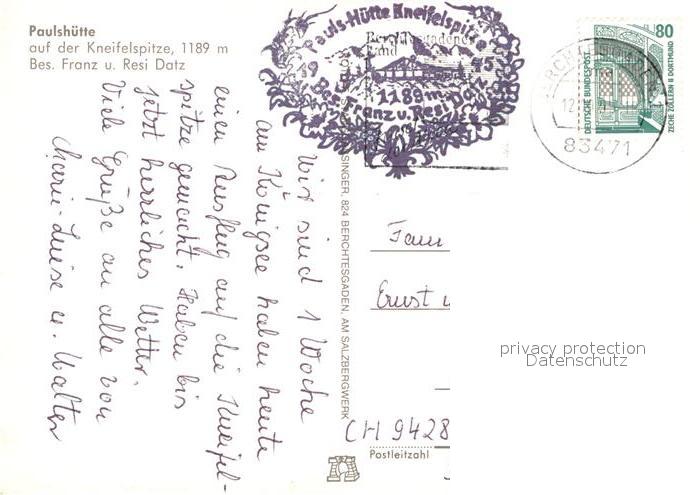 Paulshütte
auf der Kneifelspitze, 1189 m
Bes. Franz u. Resi Datz
Pauls-Hütte Kneifelspitze
Berchtesgadener
Land
1189 m
Bes. Franz u. Resi Datz
80
DEUTSCHE BUNDESPOST
ZECHE ZOLLERN II DORTMUND
12
83471
Wir sind 1 Woche
am Königsee haben heute
einen Ausflug auf die Kneifel-
spitze gemacht. Haben bis
jetzt herrliches Wetter.
Viele Grüße an alle von
Marie-Luise u. Walter
SINGER, 824 BERCHTESGADEN, AM SALZBERGWERK
Fam
Ernst u
CH 9428
Postleitzahl
privacy protection
Datenschutz